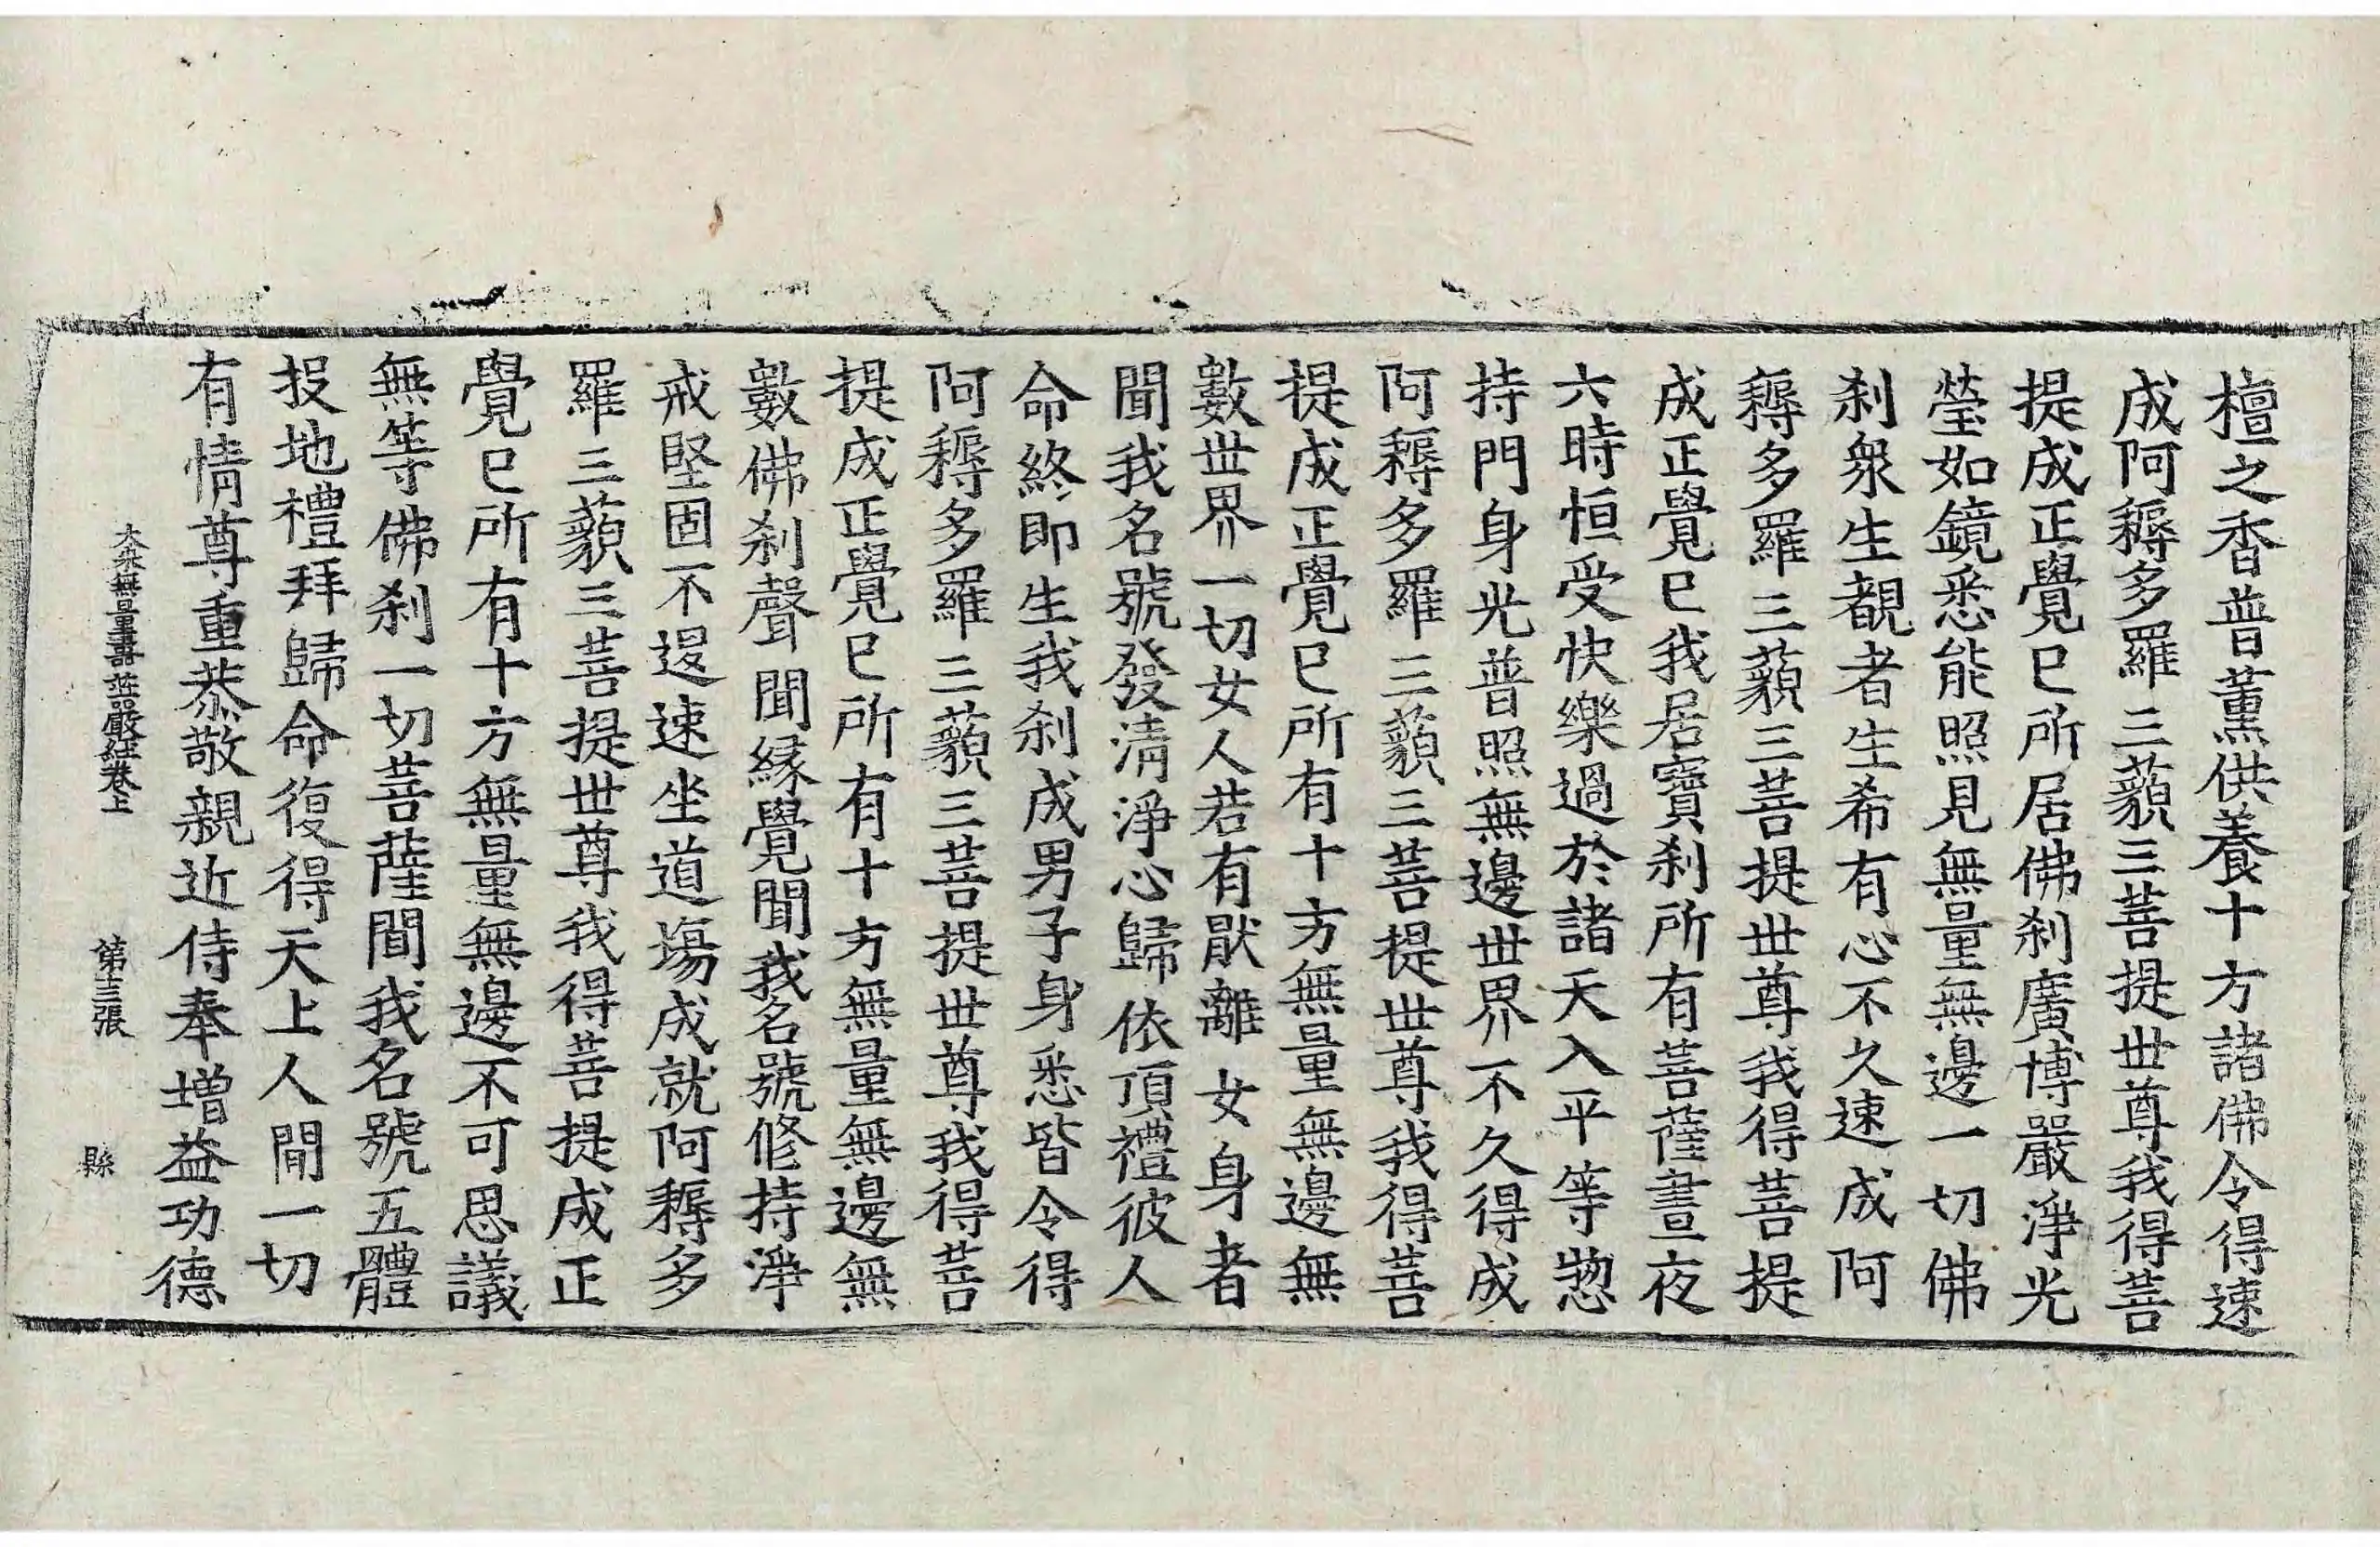 檀之香普薰供養十方諸佛令得速
成阿耨多羅三藐三菩提世尊我得菩
提成正覺已所居佛刹廣博嚴淨光
瑩如鏡悉能照見無量無邊一切佛
刹衆生覩者生希有心不久速成阿
耨多羅三藐三菩提世尊我得菩提
成正覺已我居寶刹所有菩薩晝夜
六時恒受快樂過於諸天入平等惣
持門身光普照無邊世界不久得成
阿耨多羅三藐三菩提世尊我得菩
提成正覺已所有十方無量無邊無
數世界一切女人若有厭離女身者
聞我名號發清淨心歸依頂禮彼人
命終即生我刹成男子身悉皆令得
阿耨多羅三藐三菩提世尊我得菩
提成正覺已所有十方無量無邊無
數佛刹聲聞緣覺聞我名號修持淨
戒堅固不退速坐道場成就阿耨多
羅三藐三菩提世尊我得菩提成正
覺已所有十方無量無邊不可思議
無等佛刹一切菩薩聞我名號五體
投地禮拜歸命復得天上人間一切
有情尊重恭敬親近侍奉增益功德
大乘無量壽莊嚴經卷上 第十三張 縣